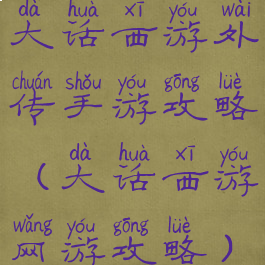 dà huà xī yóu wài
大话西游外
chuán shǒu yóu gōng lüè
传手游攻略
dà huà xī yóu
（大话西游
wǎng yóu gōng lüè
网游攻略）